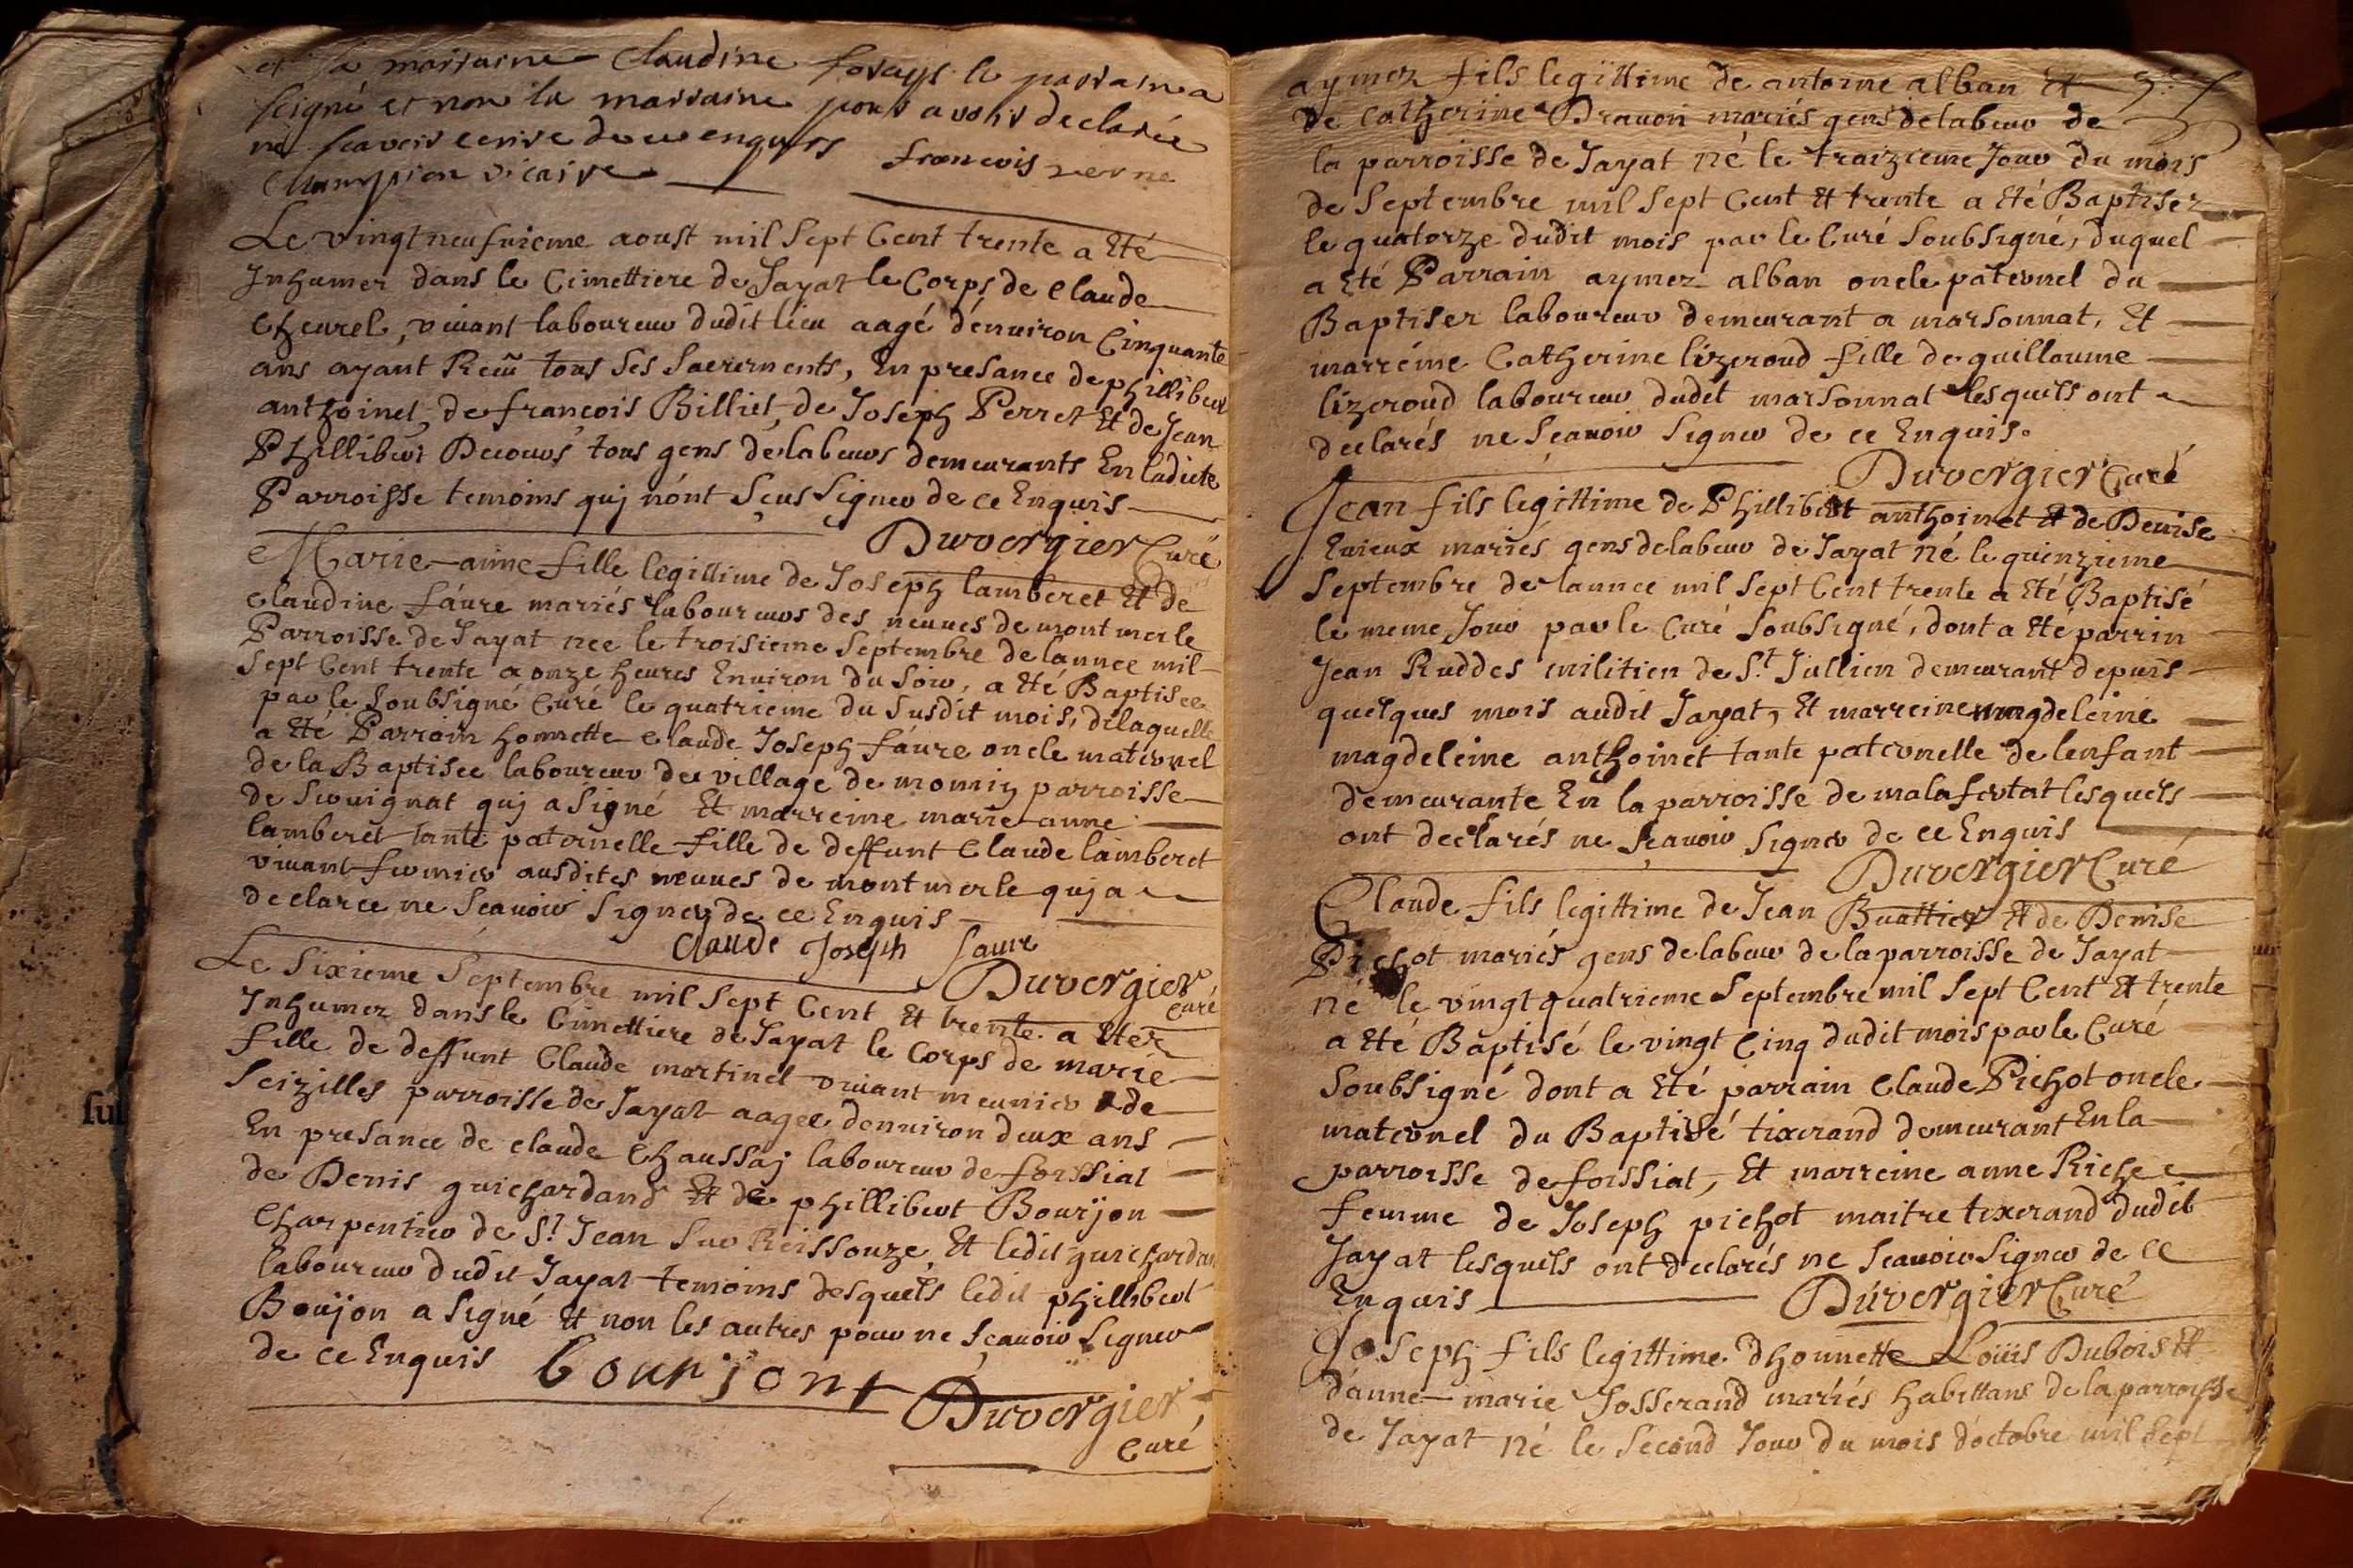 et sa marraine Claudine le parrain a
signé et non la marraine pour avoir declarée
ne scavoir ecrire de ce enquis francois verne
Champion vicaire
Le vingt neufvieme aoust mil sept Cent trente a Eté
Inhumer dans le Cimettiere de Jayat le Corps de Claude
Cheurel, vivant laboureur dudit lieu aagé d'environ Cinquante
ans ayant Receu tous ses sacrements, En presance de phillibert
anthoinet, de françois Billiet, de Joseph Perret Et de Jean
Phillibert Decours tous gens de labeurs demeurants En ladicte
Parroisse temoins quj n'ont sçus signer de ce Enquis
Duvergier Curé
Marie-anne fille legittime de Joseph lamberet Et de
claudine faure mariés laboureurs des neuves de montmerle
Parroisse de Jayat nee le troisieme septembre de lannee mil
sept Cent trente a onze heures Environ du soir, a Eté Baptisee
par le soubsigné Curé le quatrieme du susdit mois, delaquelle
a Eté Parrain honnette claude Joseph faure oncle maternel
de la Baptisee laboureur de village de parroisse
de quj a signé Et marreine marie-anne
lamberet tante paternelle fille de deffunt Claude lamberet
vivant fermier ausdites neuves de montmerle quj a
declaree ne sçavoir signer de ce Enquis
Claude Joseph faure
Duvergier
Curé
Le sixieme septembre mil sept Cent Et trente a Eter
Inhumer dans le Cimettiere de Jayat le Corps de marie
fille de deffunt Claude martinet vivant meunier de
seizilles parroisse de Jayat aagee denviron deux ans
En presance de claude Chaussaj laboureur de foissiat
de Denis guichardand Et de phillibert Bourjon
Charpentier de St. Jean sur Reissouze, Et ledit guichardan
laboureur dudit Jayat temoins desquels ledit phillibert
Boujon a signé Et non les autres pour ne sçavoir signer
de ce Enquis bourjont
Duvergier
Curé
aymez fils legittime de antoine alban Et
de Catherine Dravon mariés gens delabeur de
la parroisse de Jayat né le traizieme Jour du mois
de septembre mil sept Cent Et trente a Eté Baptiser
le quatorze dudit mois par le Curé soubsigné, duquel
a Eté Parrain aymez alban oncle paternel du
Baptiser laboureur demeurant a marsonnat, Et
marréine Catherine lizeroud fille de guillaume
lizeroud laboureur dudit marsonnat lesquels ont
declarés ne sçavoir signer de ce Enquis.
Duvergier Curé
Jean fils legittime de Phillibert anthoinet Et de Denise
Enieux mariés gens delabeur de Jayat né le quinzieme
septembre de lannee mil sept Cent trente a Eté Baptisé
le meme Jour par le Curé soubsigné, dont a Eté parrin
Jean Ruddes militien de St. Jullien demeurant depuis
quelques mois audit Jayat, Et marreine magdeleine
magdeleine anthoinet tante paternelle de lenfant
demeurante En la parroisse de malafretat lesquels
ont declarés ne sçavoir signer de ce Enquis
Duvergier Curé
Claude fils legittime de Jean Buattier Et de Denise
Pichot mariés gens delabeur de la parroisse de Jayat
né le vingt quatrieme septembre mil sept Cent Et trente
a Eté Baptisé le vingt Cinq dudit mois par le Curé
soubsigné dont a Eté parrain Claude Pichot oncle
maternel du Baptisé tixerand demeurant En la
parroisse de foissiat, Et marreine anne Riche
femme de Joseph pichot maitre tixerand dudit
Jayat lesquels ont declarés ne sçavoir signer de ce
Enquis Duvergier Curé
Joseph fils legittime dhonnette Loüis Dubois Et
d'anne-marie Josserand mariés habittans de la parroisse
de Jayat né le second Jour du mois d'octobre mil sept